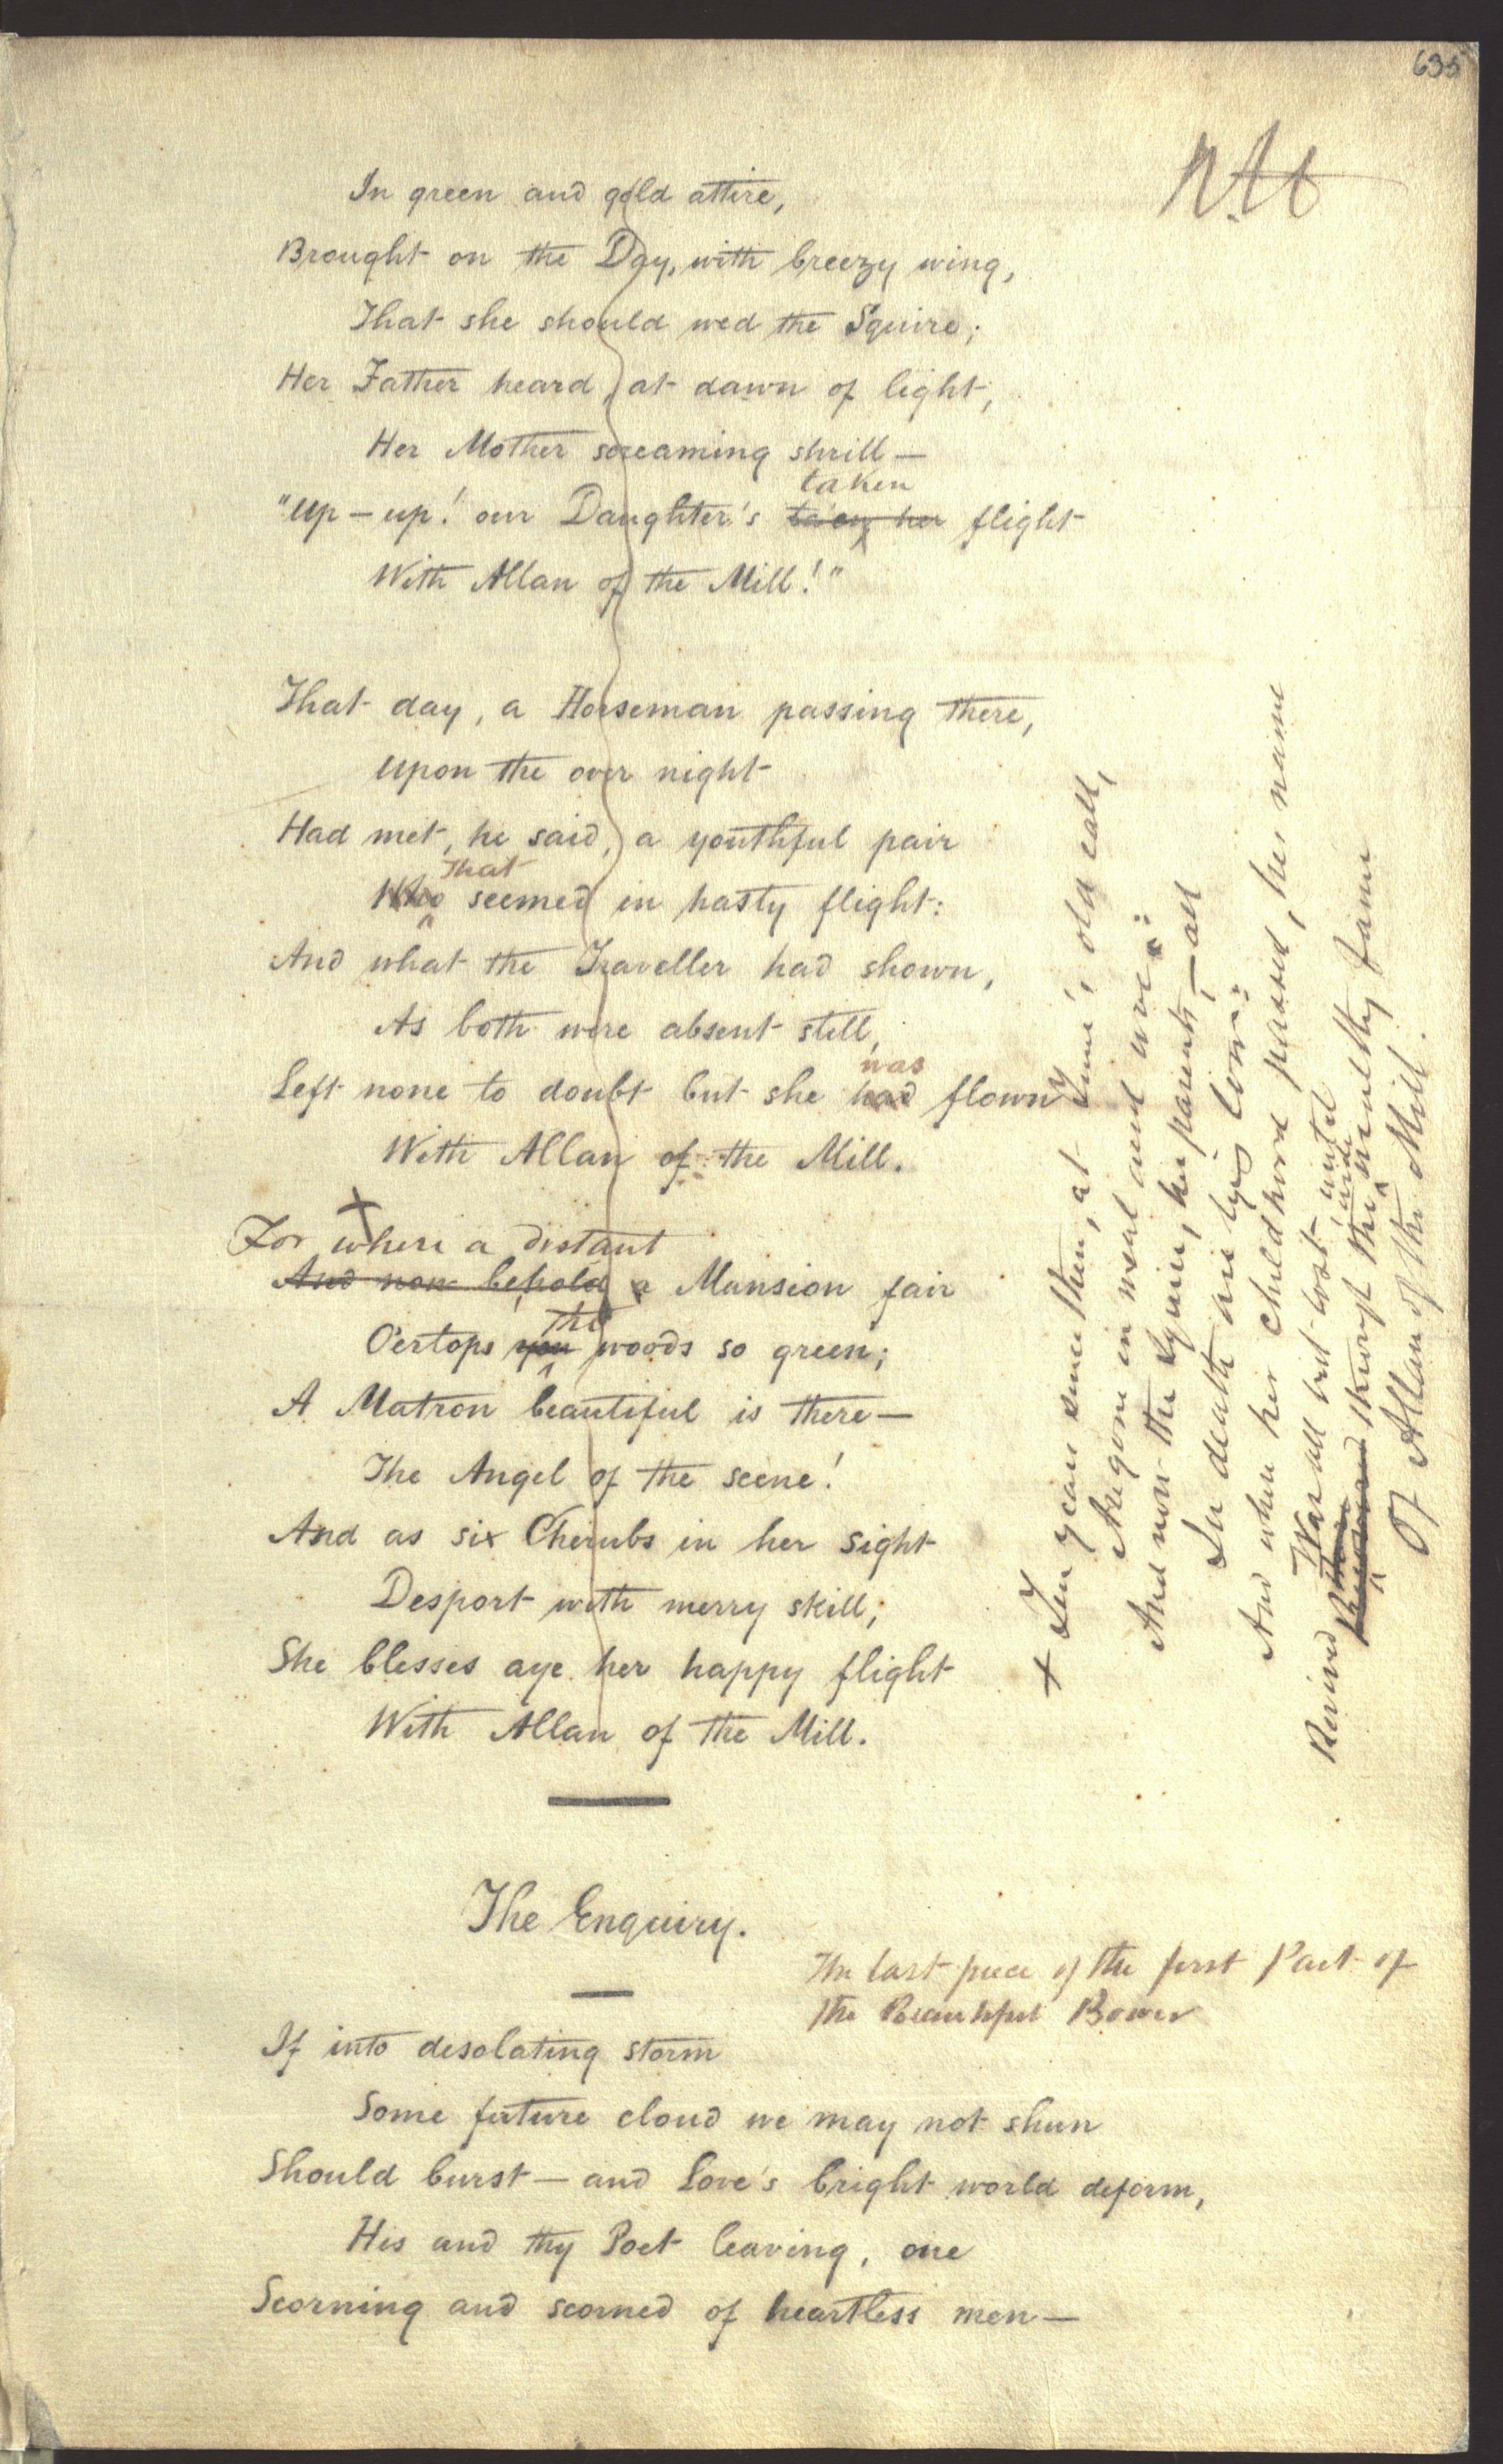 635
In green and gold attire,
Brought on the Day, with breezy wing,
That she should wed the Squire;
Her Father heard, at dawn of light,
Her Mother screaming shrill—
taken
"Up — up! our Daughter's ta'en her flight
With Allan of the Mill!"
That day, a Horseman passing there,
Upon the over night
Had met, he said, a youthful pair
That
Who seemed in hasty flight:
And what the Traveller had shown,
As both were absent still,
was
Left none to doubt but she had flown
With Allan of the Mill.
+
For where a distant
And now behold a Mansion fair
the
O'ertops yon woods so green;
A Matron beautiful is there—
The Angel of the scene!
And as six Cherubs in her sight
Desport with merry skill,
She blesses aye her happy flight
With Allan of the Mill.
+ Ten years since then, at Time's old call,
Are gone in weal and woe:
And now the Squire, her parents,—all
In death are lying low:
And when her childhood passed, her name
Was all but lost, until
Revived through the wide wealthy fame
Of Allan of the Mill.
The Enquiry.
The last piece of the first Part of
the Beautiful Bower
If into desolating storm
Some future cloud we may not shun
Should burst — and Love's bright world deform,
His and thy Poet leaving, one
Scorning and scorned of heartless men—